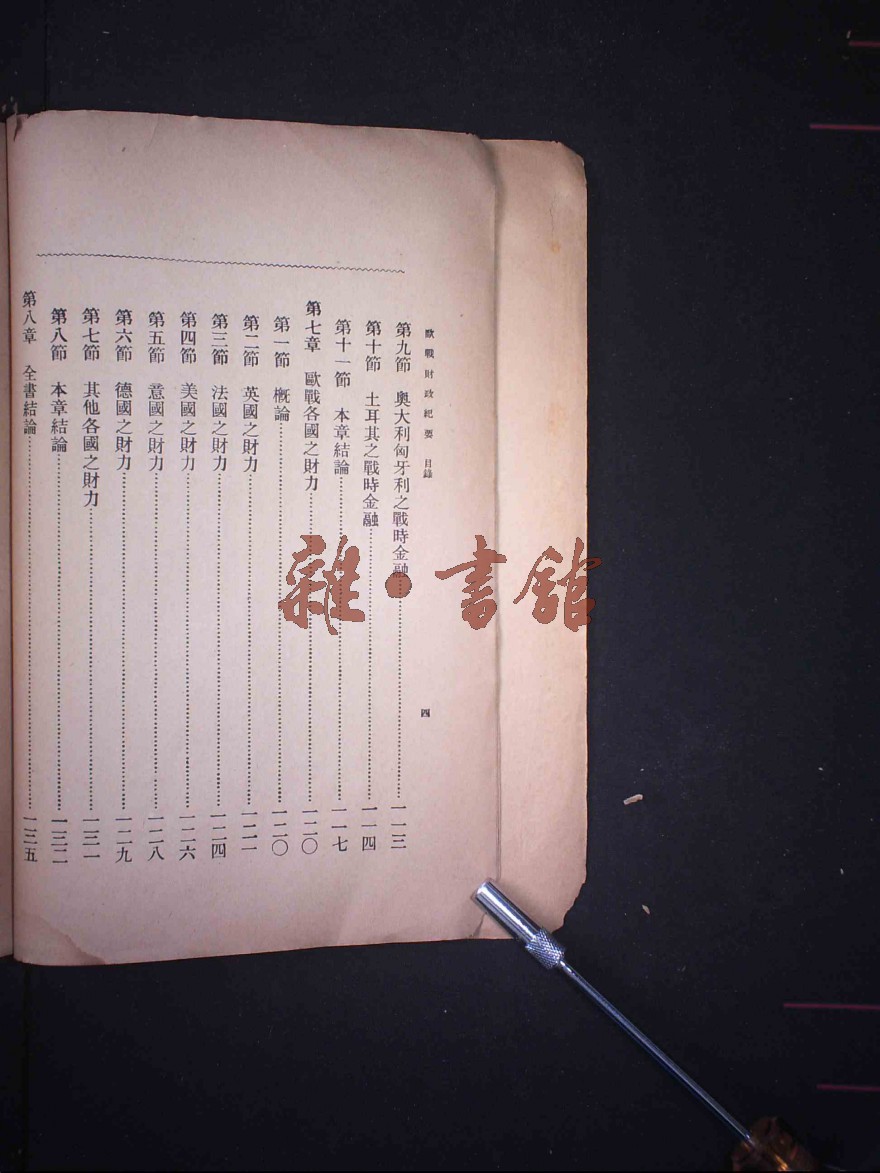 歐戰財政紀要 目錄 四
第九節 奧大利匈牙利之戰時金融……一一三
第十節 土耳其之戰時金融……一一四
第十一節 本章結論……一一七
第七章 歐戰各國之財力……一二〇
第一節 概論……一二〇
第二節 英國之財力……一二一
第三節 法國之財力……一二四
第四節 美國之財力……一二六
第五節 意國之財力……一二八
第六節 德國之財力……一二九
第七節 其他各國之財力……一三一
第八節 本章結論……一三二
第八章 全書結論……一三五
雜·書館